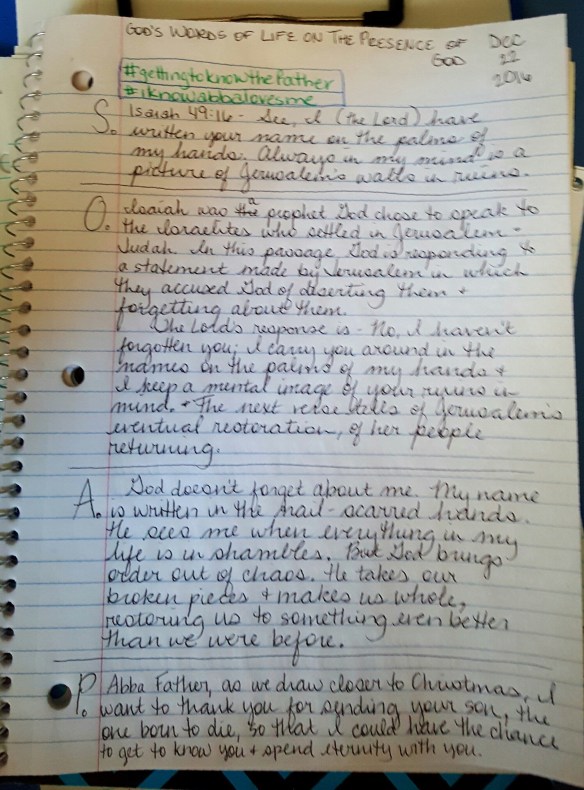 GOD'S WORDS OF LIFE ON THE PRESENCE OF GOD
DEC 22 2016
#gettingtoknowthefather
#iknowabbalovesme
S. Isaiah 49:16 - See, I (the Lord) have
written your name on the palms of
my hands. Always in my mind is a
picture of Jerusalem's walls in ruins.
O. Isaiah was the a prophet God chose to speak to
the Israelites who settled in Jerusalem -
Judah. In this passage God is responding to
a statement made by Jerusalem in which
they accused God of deserting them +
forgetting about them.
The Lord's response is - No, I haven't
forgotten you; I carry you around in the
names on the palms of my hands +
I keep a mental image of your ruins in
mind. + The next verse tells of Jerusalem's
eventual restoration, of her people
returning.
A. God doesn't forget about me. My name
is written in the nail-scarred hands.
He sees me when everything in my
life is in shambles. But God brings
order out of chaos. He takes our
broken pieces + makes us whole,
restoring us to something even better
than we were before.
P. Abba Father, as we draw closer to Christmas, I
want to thank you for sending your son, the
one born to die, so that I could have the chance
to get to know you + spend eternity with you.